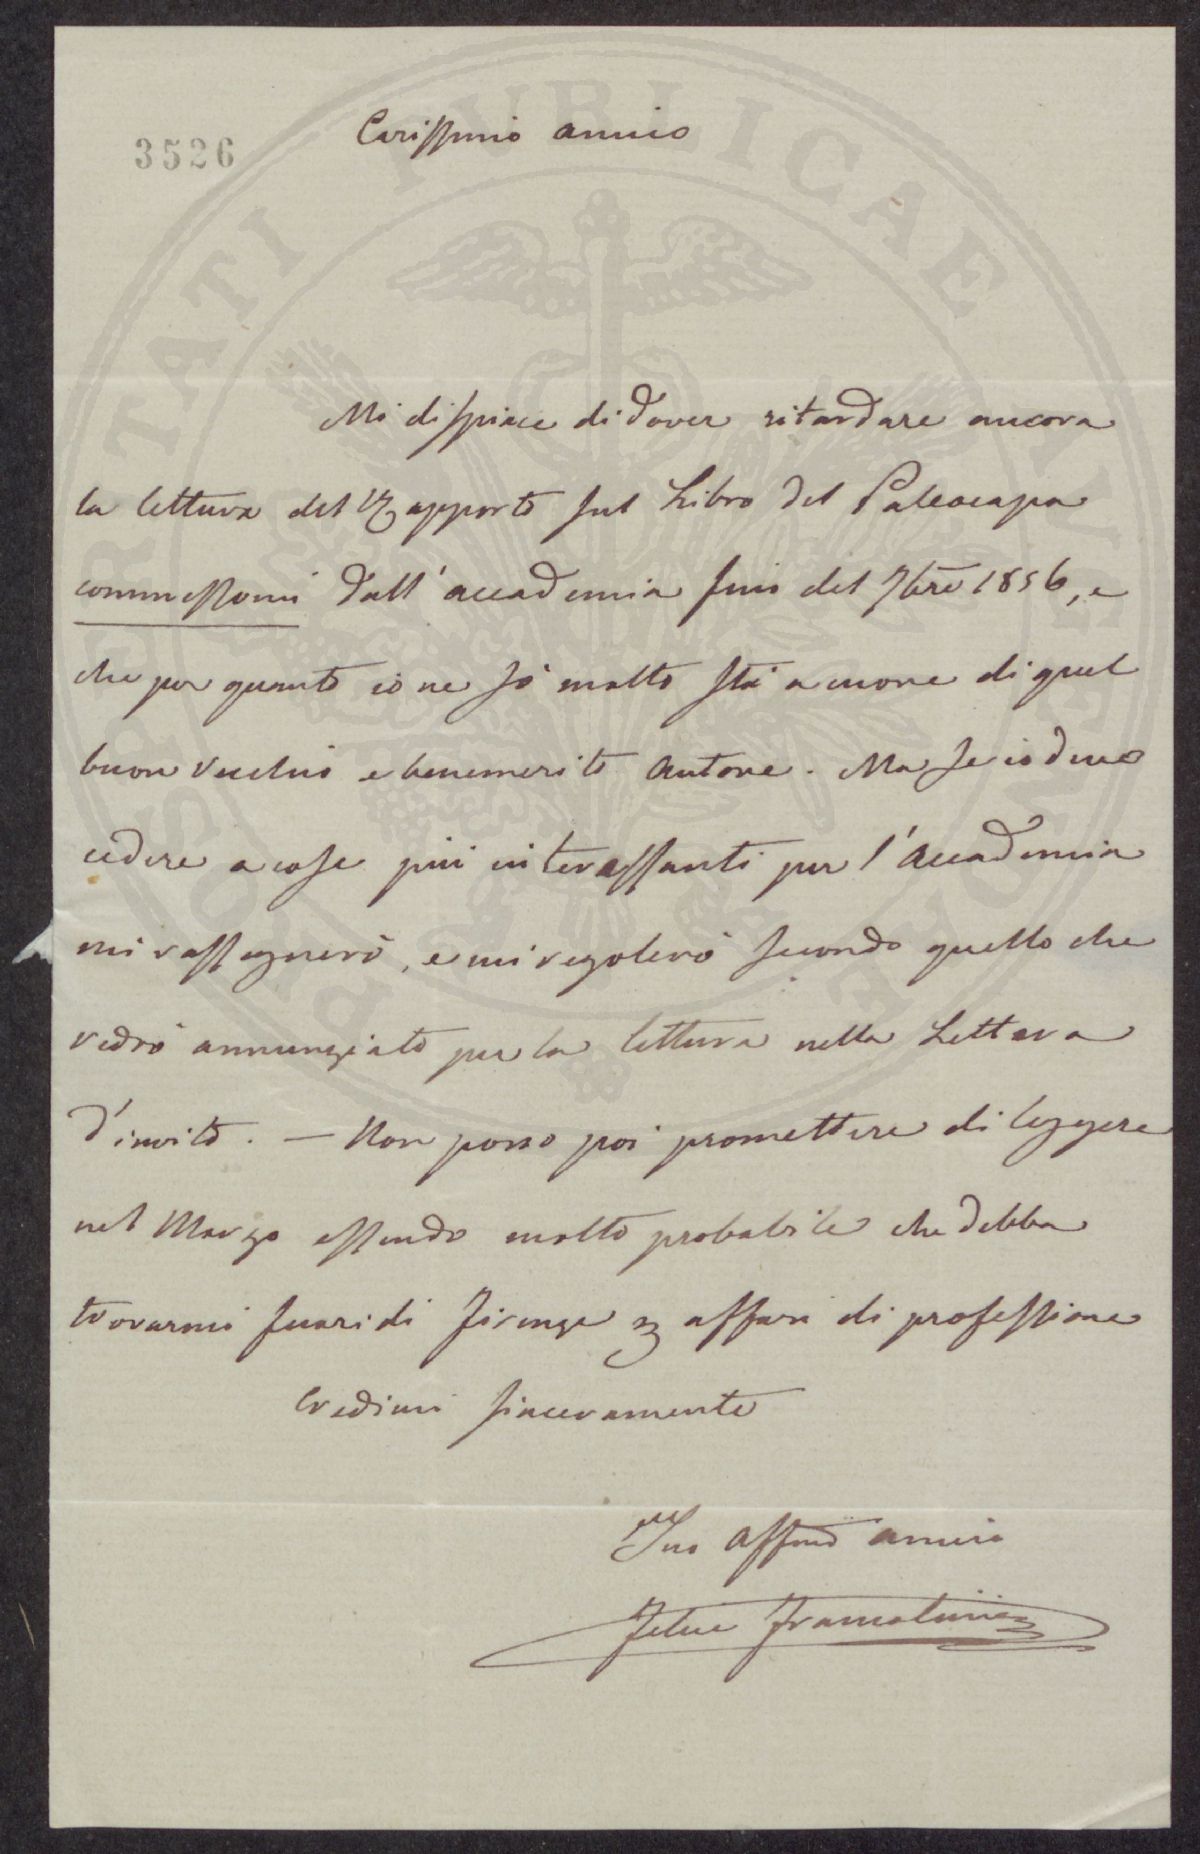 3526
Carissimo amico
Mi dispiace di dover ritardare ancora
la lettura del Rapporto sul Libro del Paleocapa
commessomi dall'accademia fino del 7bre 1856, e
che per quanto io ne sò molto stà a cuore di quel
buon Vecchio e benemerito autore. Ma se io devo
cedere a cose più interessanti per l'Accademia
mi rassegnerò, e mi regolerò secondo quello che
vedrò annunziato per la lettura nella Lettera
d'invito. — Non posso poi promettere di leggere
nel Marzo essendo molto probabile che debba
trovarmi fuori di Firenze affari di professione
Credimi sinceramente
Tuo Affmo amico
Felice Francolini
PROSPERITATI PUBLICAE